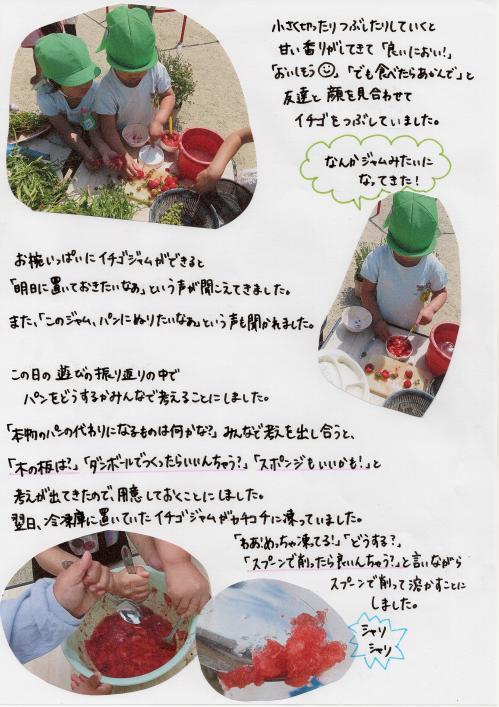 小さく切ったりつぶしたりしていくと
甘い香りがしてきて「良いにおい!」
「おいしそう☺」「でも食べたらあかんで」と
友達と顔を見合わせて
イチゴをつぶしていました。
なんかジャムみたいに
なってきた!
お椀いっぱいにイチゴジャムができると
「明日に置いておきたいなぁ」という声が聞こえてきました。
また、「このジャム、パンにぬりたいなぁ」という声も聞かれました。
この日の遊びの振り返りの中で
パンをどうするかみんなで考えることにしました。
「本物のパンの代わりになるものは何かな?」みんなで考えを出し合うと、
「木の板は?」「ダンボールでつくったらいいんちゃう?」「スポンジもいいかも!」と
考えが出てきたので、用意しておくことにしました。
翌日、冷凍庫に置いていたイチゴジャムがカチコチに凍っていました。
「わぁ!めっちゃ凍ってる!」「どうする?」
「スプーンで削ったら良いんちゃう?」と言いながら
スプーンで削って溶かすことに
しました。
シャリ
シャリ